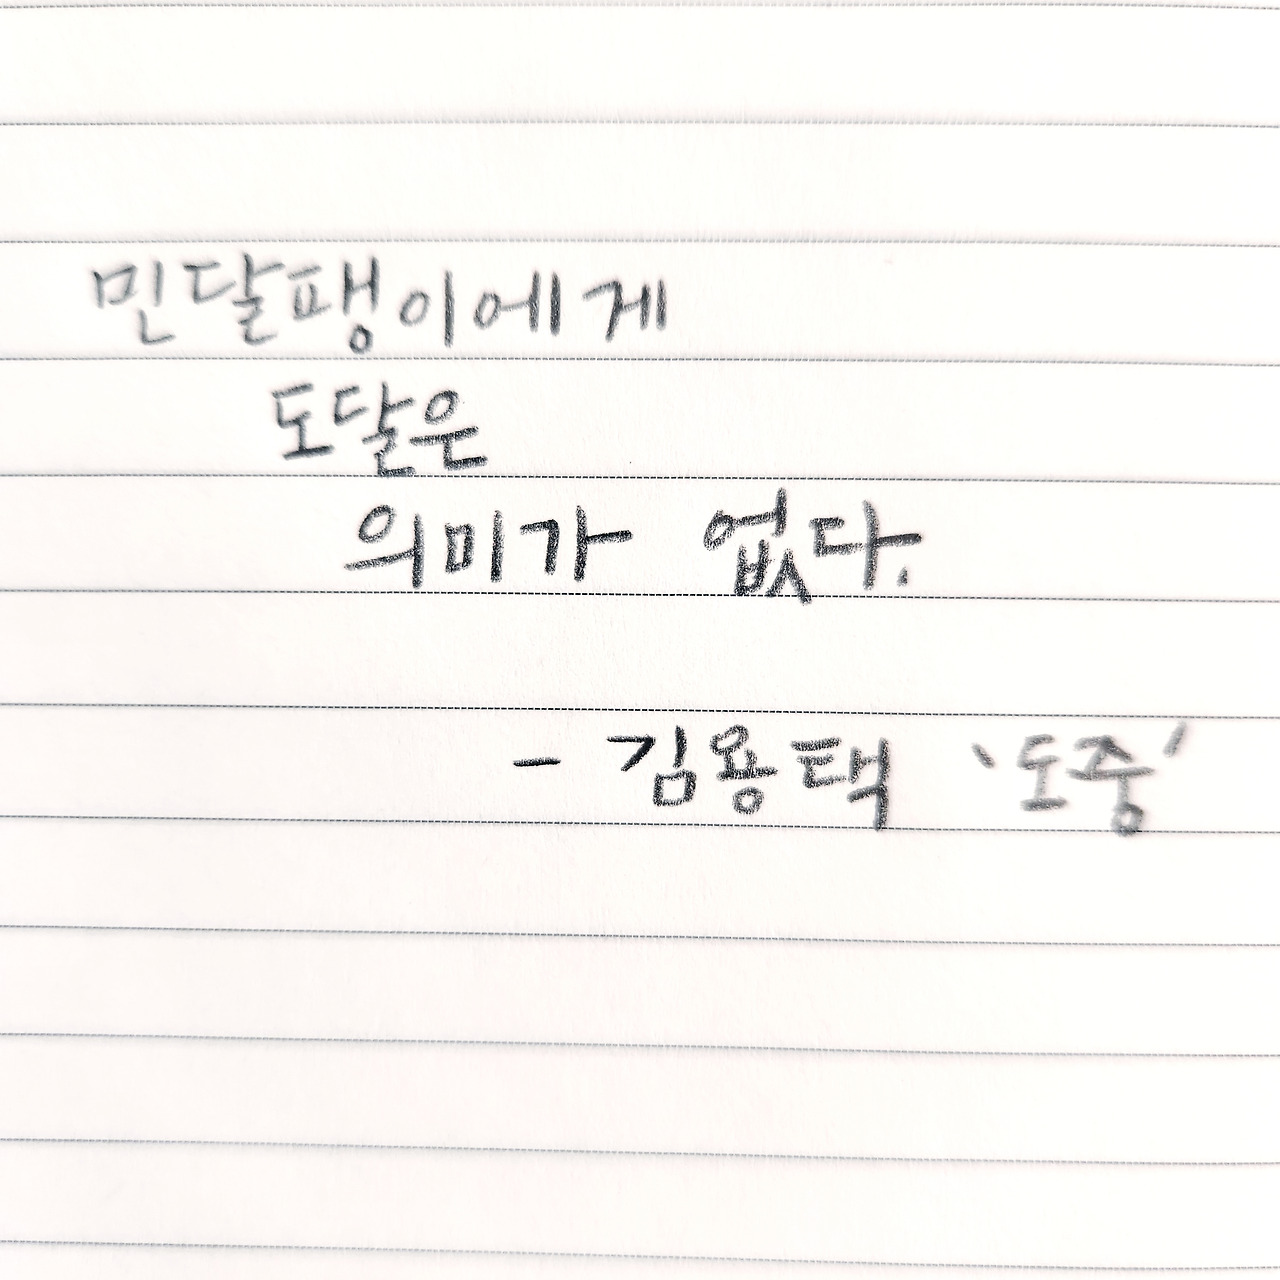 민달팽이에게
도달은
의미가 없다.
- 김용택 '도중'